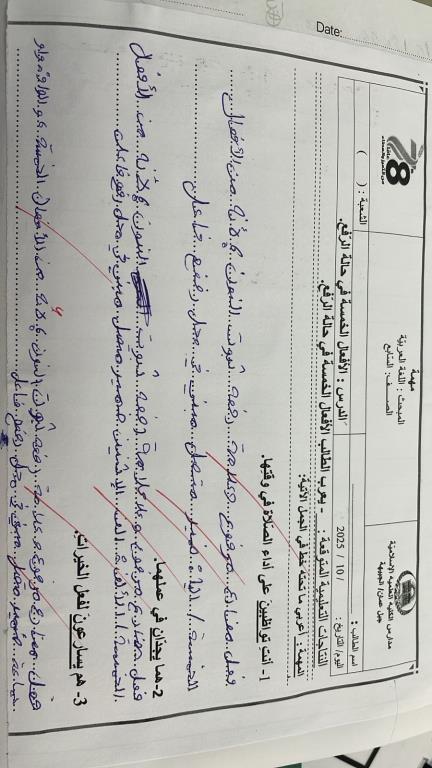 Date:
مدارس الكلية العلمية الإسلامية
جبل عمان / الجبيهة
مهمة
المبحث : اللغة العربية
الصــف : السابع
اسم الطالب :
الشعبة : ( )
اليوم/ التاريخ : / 10 / 2025
الدرس : الأفعال الخمسة في حالة الرفع.
النتاجات التعليمية المتوقعة : - يعرب الطالب الأفعال الخمسة في حالة الرفع.
المهمة : أعربي ما تحته خط في الجمل الآتية:
1- أنتِ تواظبين على أداء الصلاة في وقتها.
فعل مضارع مرفوع وعلامة رفعه ثبوت النون لأنه من الأفعال
الخمسة / الياء ضمير متصل مبني في محل رفع فاعل
2- هما يجدّان في عملهما.
فعل مضارع مرفوع وعلامة رفعه ثبوت النون لأنه من الأفعال
الخمسة / الألف ألف الاثنين ضمير متصل مبني في محل رفع فاعل
3- هم يسارعون لفعل الخيرات.
فعل مضارع مرفوع وعلامة رفعه ثبوت النون لأنه من الأفعال الخمسة
ضمير متصل مبني في محل رفع فاعل